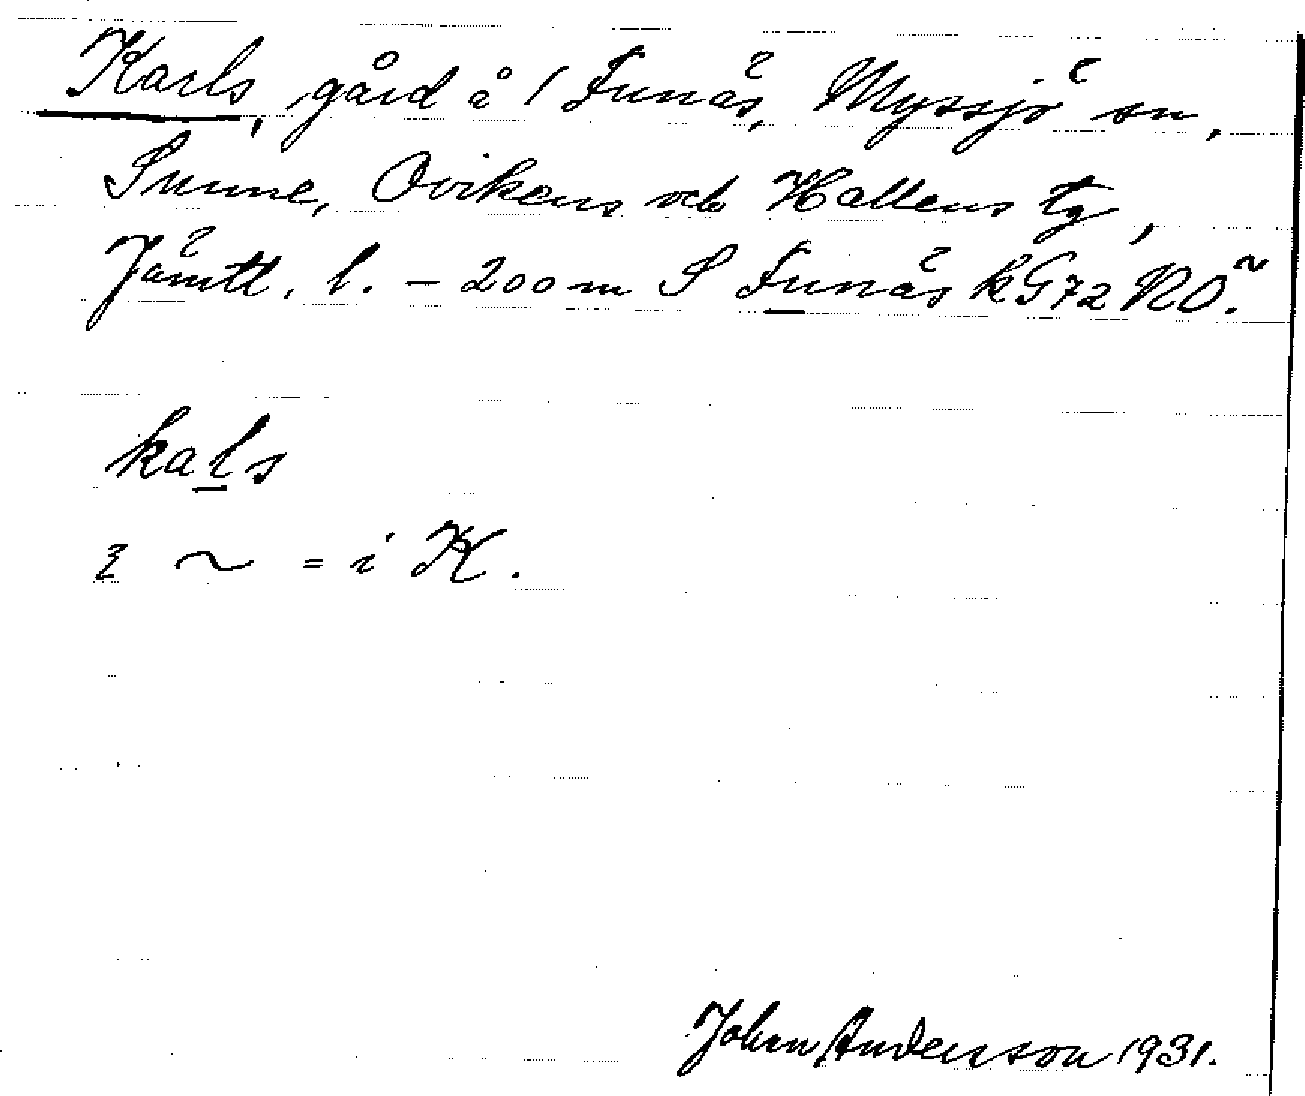 Karls, gård å 1 Funäs, Myssjö sn,
Sunne, Ovikens och Hallens tg,
Jämtl. l. – 200 m S Funäs k G72 NÖ.
kals
i ~ = i K.
Johan Anderson 1931.